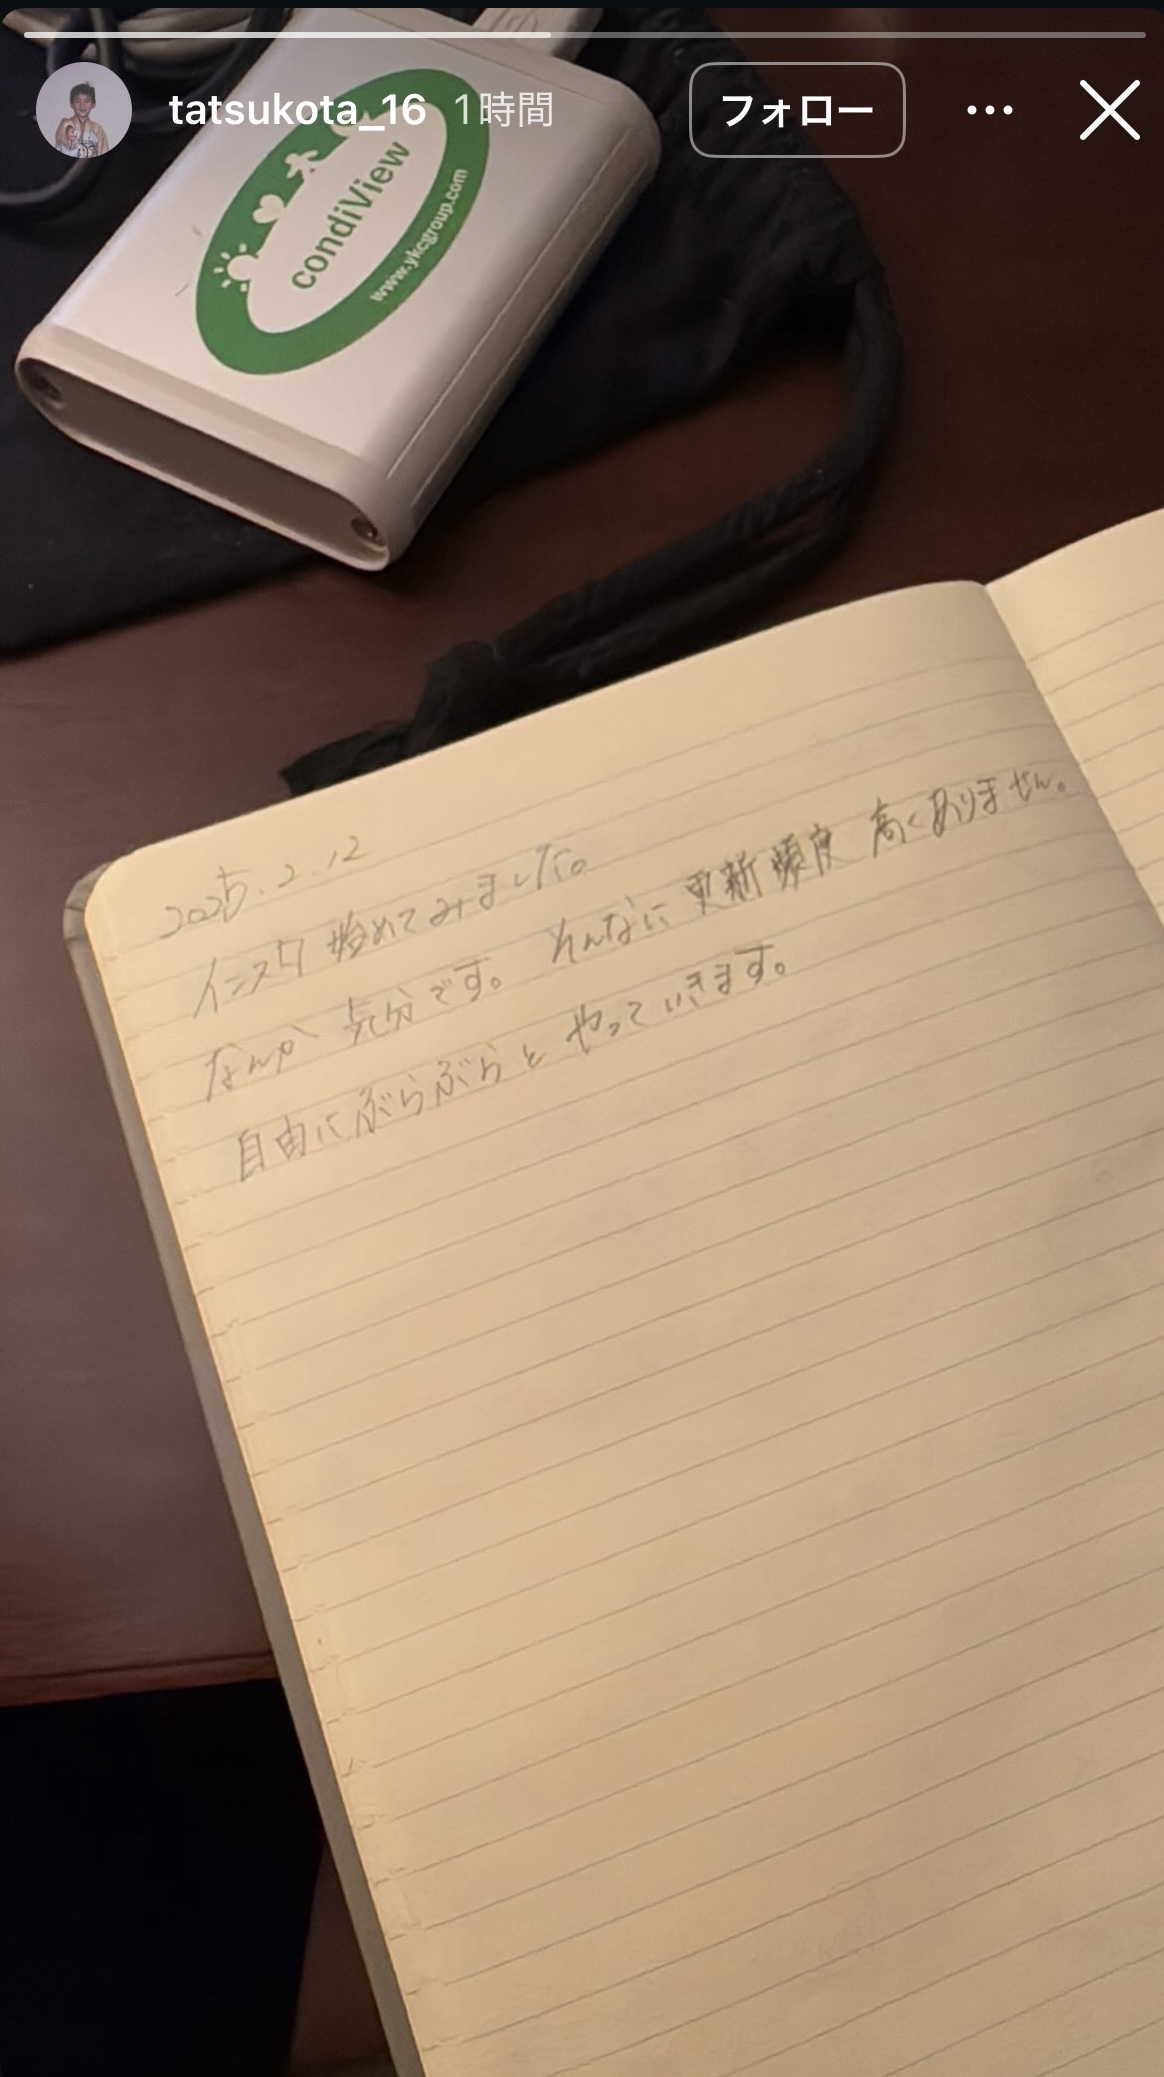 tatsukota_16 1時間 フォロー
condiView
www.ykcgroup.com
2025.2.12
インスタ始めてみました。
なんか気分です。そんなに更新頻度高くありません。
自由にぶらぶらとやっていきます。